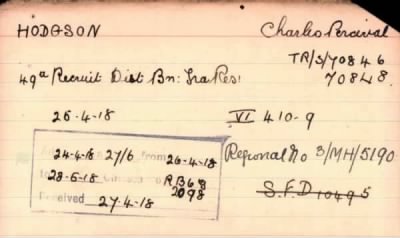 HODGSON Charles Percival
TR/3/70846
49a Recruit Dist Bn: Tra Res! 70848.
26-4-18 VI 410-9
24-4-18 27/6 from 26-4-18 Regional No 3/MH/5190
28-6-18 RB68
2098 S.F.D 10495
Received 27-4-18